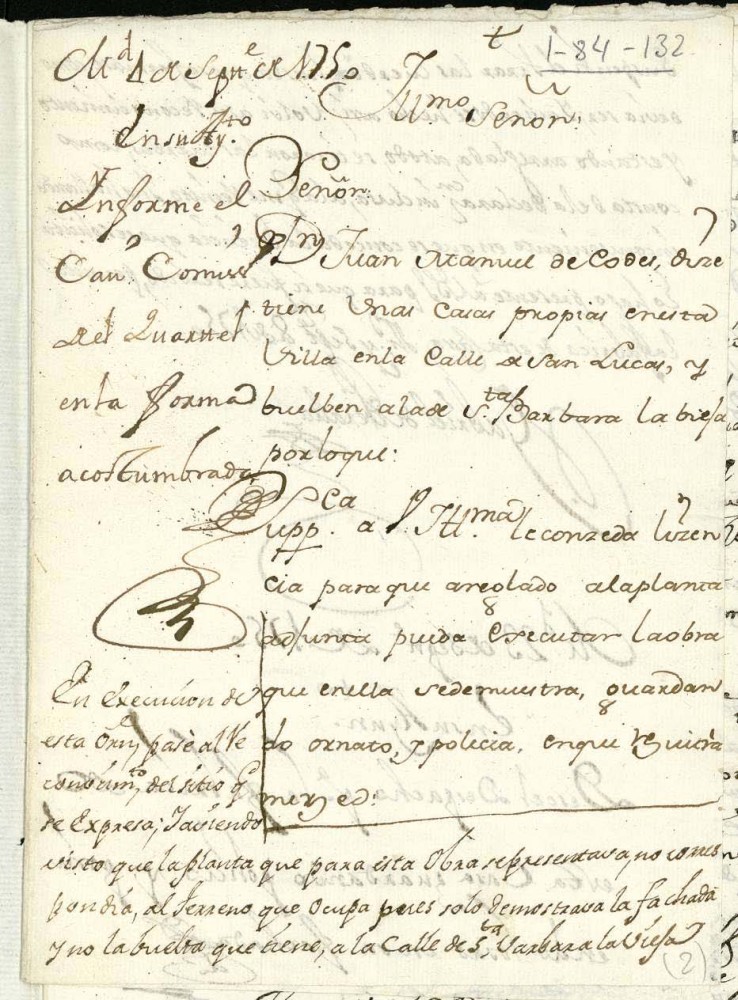 1-84-132
Md 1 de Septe de 1750
En su Aytto
Informe el Señor
Cavo Comisso
del Quartel
en la forma
acostumbrada
Illmo Señor
Señor
Dn Juan Manuel de Codes, dize
tiene Unas Casas propias en esta
Villa en la Calle de San Lucas, y
buelben ala de Sta Barbara la bieja
por loque:
Suppca a V. Illma le conzeda lizen
cia para que areglado ala planta
adjunta pueda Executar la obra
que enella se demuestra, guardan
do ornato, y policia, en que rezivira
merzed:
En Execucion de
esta Orn pasè al Re
conocimto del sitio qe
se Expresa; Javiendo
visto que la planta que para esta Obra se presentava, no corres
pondia, al Terreno que Ocupa pues solo demostrava la fachada
y no la buelta que tiene, a la Calle de Sta Varbara la Vieja
(2)